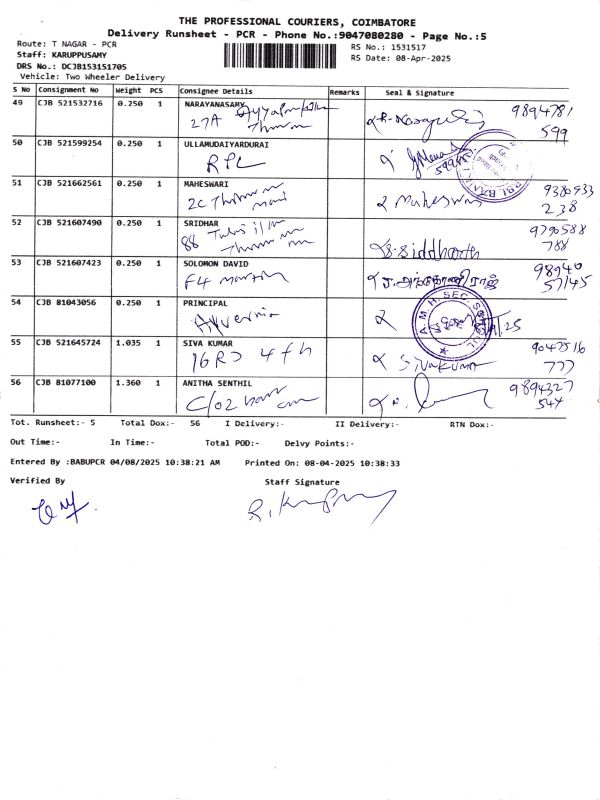 THE PROFESSIONAL COURIERS, COIMBATORE
Delivery Runsheet - PCR - Phone No.:9047080280 - Page No.:5
Route: T NAGAR - PCR
RS No.: 1531517
Staff: KARUPPUSAMY
RS Date: 08-Apr-2025
DRS No.: DCJB153151705
Vehicle: Two Wheeler Delivery
S No Consignment No Weight PCS Consignee Details Remarks Seal & Signature
49 CJB 521532716 0.250 1 NARAYANASAMY 9894781
27A 599
50 CJB 521599254 0.250 1 ULLAMUDAIYARDURAI
RPL
51 CJB 521662561 0.250 1 MAHESWARI Maheswari 9380933
2C 238
52 CJB 521607490 0.250 1 SRIDHAR 9790588
88 S. Siddharth 788
53 CJB 521607423 0.250 1 SOLOMON DAVID 98940
F4 57145
54 CJB 81043056 0.250 1 PRINCIPAL
A.M.H.SEC.SCHOOL
55 CJB 521645724 1.035 1 SIVA KUMAR 9047516
16 RD 4th Sivakumar 777
56 CJB 81077100 1.360 1 ANITHA SENTHIL 9894327
C/02 544
Tot. Runsheet:- 5 Total Dox:- 56 I Delivery:- II Delivery:- RTN Dox:-
Out Time:- In Time:- Total POD:- Delvy Points:-
Entered By :BABUPCR 04/08/2025 10:38:21 AM Printed On: 08-04-2025 10:38:33
Verified By Staff Signature